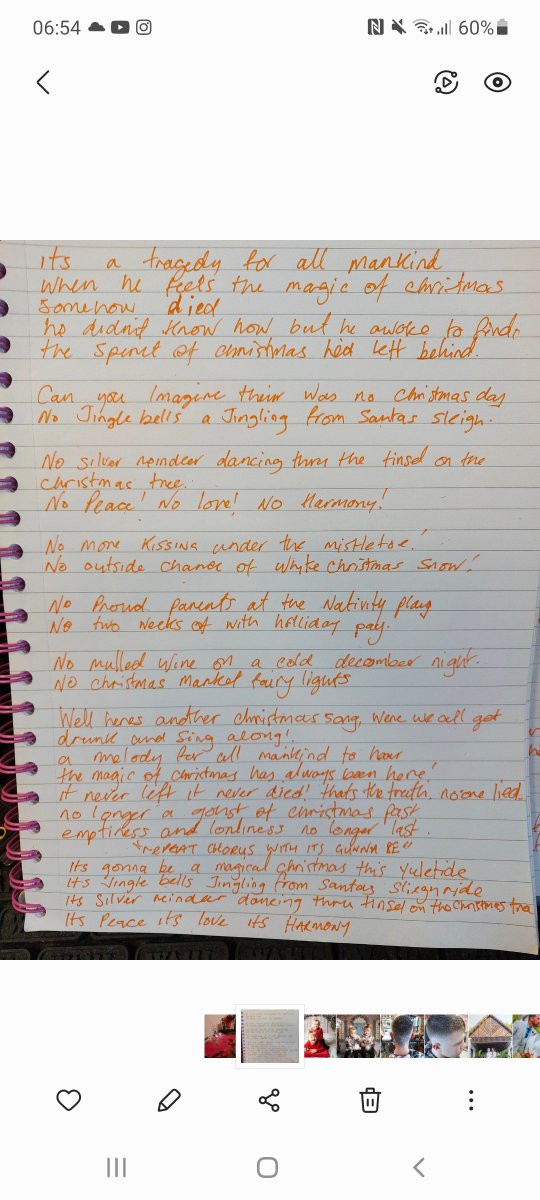 06:54
60%
its a tragedy for all mankind
when he feels the magic of christmas
somehow died
he didn't know how but he awoke to find
the spirit of christmas hed left behind.
Can you Imagine their was no christmas day
No Jingle bells a Jingling from Santas sleigh.
No silver reindeer dancing thru the tinsel on the
christmas tree.
No Peace! No love! No Harmony!
No more kissing under the mistletoe!
No outside chance of white christmas snow!
No Proud parents at the Nativity play
No two weeks of with holliday pay.
No mulled wine on a cold december night.
No christmas market fairy lights
Well heres another christmas song, were we all get
drunk and sing along!
a melody for all mankind to hear
the magic of christmas has always been here!
it never left it never died! thats the truth, no one lied
no longer a gohst of christmas past
emptiness and lonliness no longer last.
"REPEAT CHORUS WITH ITS GUNNA BE"
Its gonna be a magical christmas this yuletide
Its Jingle bells Jingling from Santas Sliegh ride
Its Silver reindeer dancing thru tinsel on the christmas tree
Its Peace its love its HARMONY